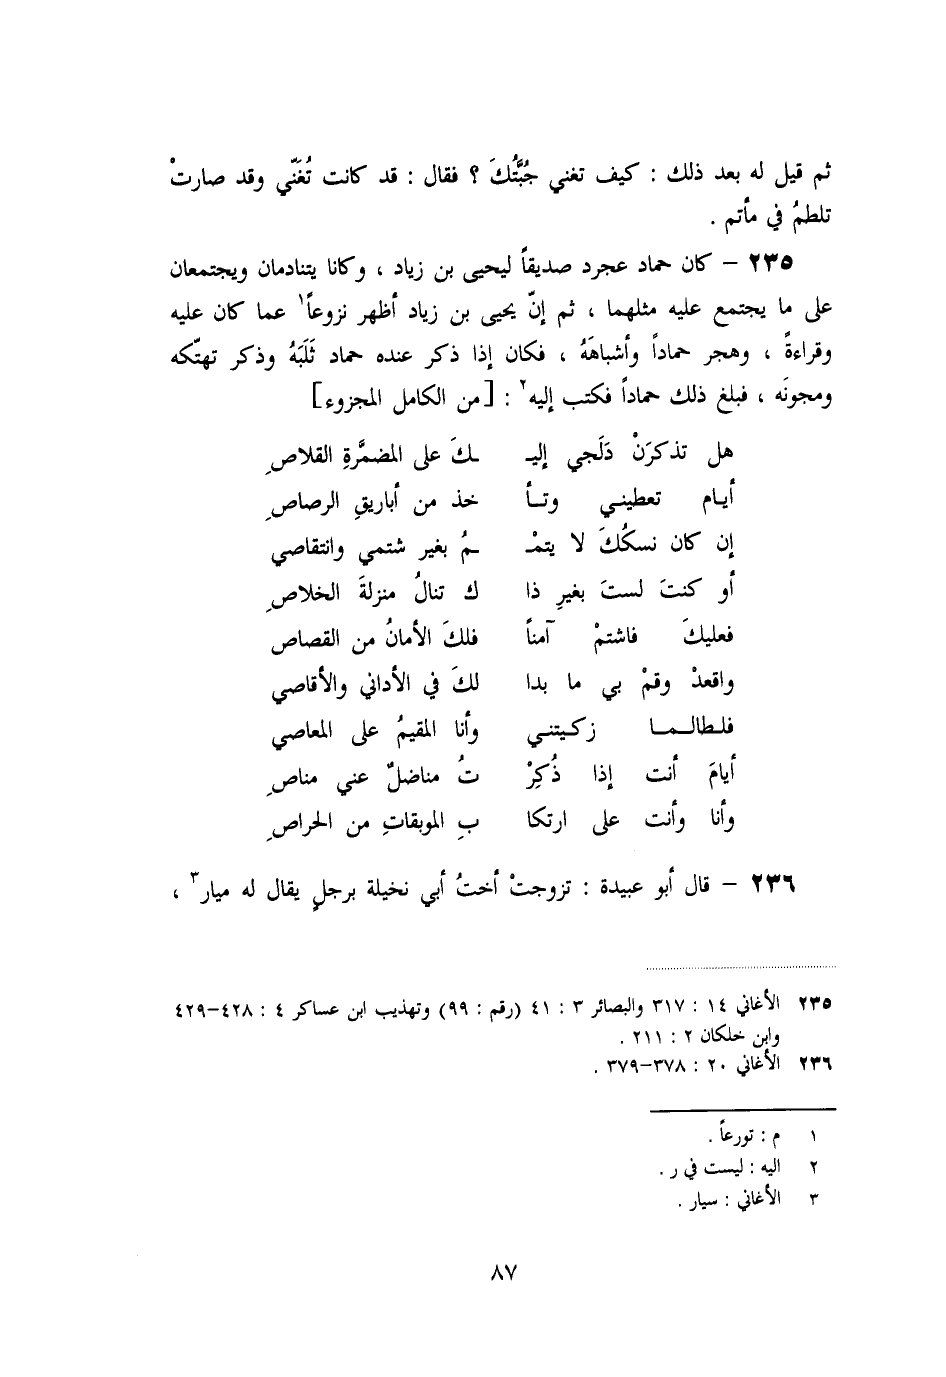 ثم قيل له بعد ذلك : كيف تغني جُبَّتُكَ ؟ فقال : قد كانت تُغَنّي وقد صارتْ
تلطمُ في مأتم .
٢٣٥ – كان حماد عجرد صديقاً ليحيى بن زياد ، وكانا يتنادمان ويجتمعان
على ما يجتمع عليه مثلهما ، ثم إنّ يحيى بن زياد أظهر نزوعاً١ عما كان عليه
وقراءةً ، وهجر حماداً وأشباهَهُ ، فكان إذا ذكر عنده حماد ثَلَبَهُ وذكر تهتّكه
ومجونَه ، فبلغ ذلك حماداً فكتب إليه٢ : [من الكامل المجزوء]
هل تذكرَنْ دَلَجي إليـ ـكَ على المضمَّرةِ القلاصِ
أيـام تعطيني وتـأ خذ من أباريقِ الرصاصِ
إن كان نسكُكَ لا يتمْـ ـمُ بغير شتمي وانتقاصي
أو كنتَ لستَ بغيرِ ذا ك تنالُ منزلةَ الخلاصِ
فعليكَ فاشتمْ آمناً فلكَ الأمانُ من القصاص
واقعدْ وقمْ بي ما بدا لكَ في الأداني والأقاصي
فلـطالـمـا زكـيتني وأنا المقيمُ على المعاصي
أيامَ أنت إذا ذُكِرْ تُ مناضلٌ عني مناصِ
وأنا وأنت على ارتكا بِ الموبقاتِ من الحراصِ
٢٣٦ – قال أبو عبيدة : تزوجتْ أختُ أبي نخيلة برجلٍ يقال له ميار٣ ،
٢٣٥ الأغاني ١٤ : ٣١٧ والبصائر ٣ : ٤١ (رقم : ٩٩) وتهذيب ابن عساكر ٤ : ٤٢٨–٤٢٩
وابن خلكان ٢ : ٢١١ .
٢٣٦ الأغاني ٢٠ : ٣٧٨–٣٧٩ .
١ م : تورعاً .
٢ اليه : ليست في ر .
٣ الأغاني : سيار .
٨٧